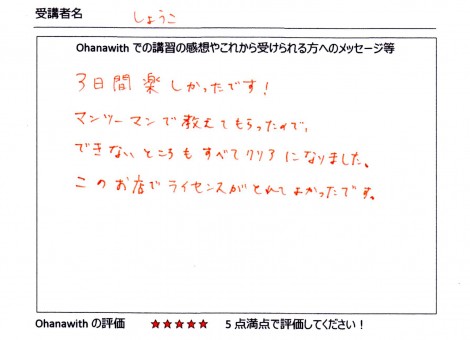 受講者名 しょうこ
Ohanawith での講習の感想やこれから受けられる方へのメッセージ等
3日間楽しかったです!
マンツーマンで教えてもらったので、
できないところもすべてクリアになりました。
このお店でライセンスがとれてよかったです。
Ohanawith の評価 ★★★★★ 5点満点で評価してください!